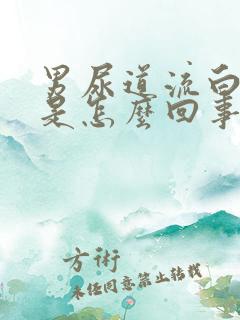 男尿道流白
是怎麼回事
方術
未经同意禁止转载